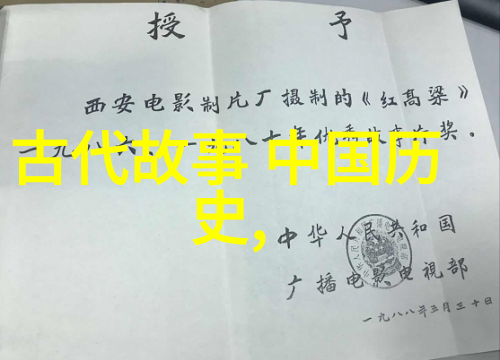 授 予
西安电影制片厂摄制的《红高粱》
一九八六一九八七年优秀故事片奖。
古代故事 中国历
史,
中华人民共和国
广播电影电视部
一九八八年三月三十日